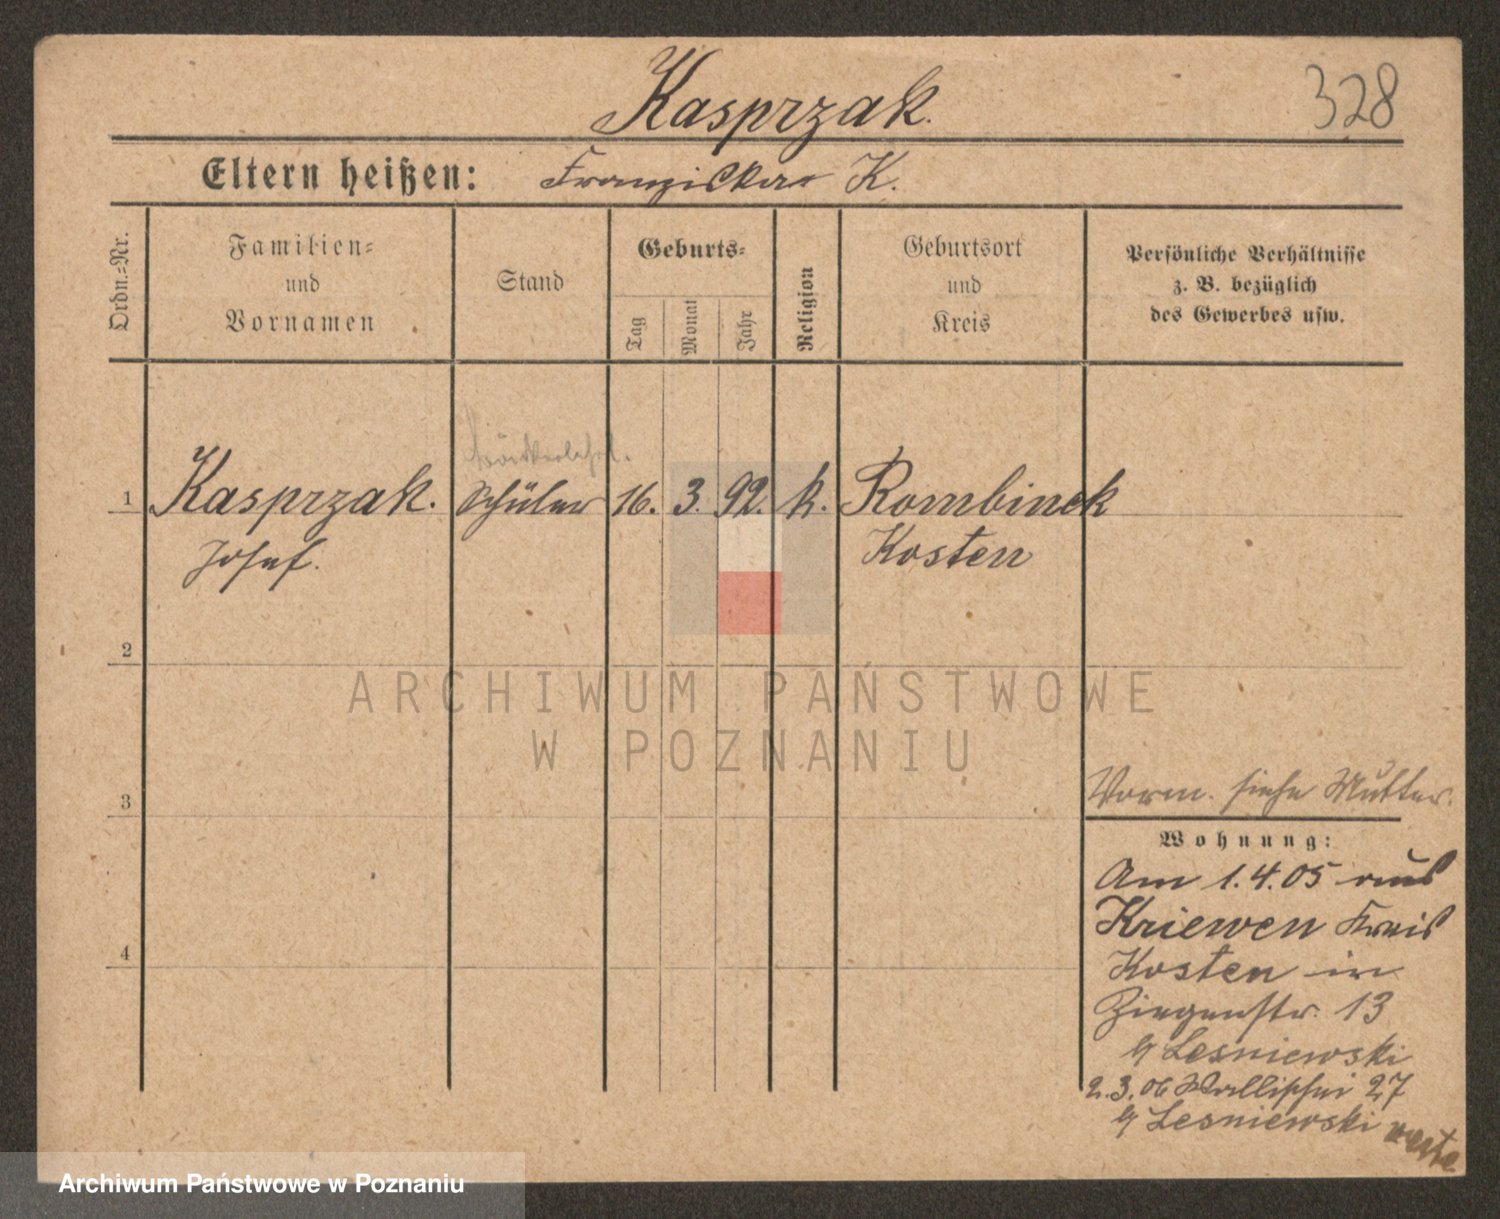 Kasprzak.
328
Eltern heißen: Franziska K.
Ordn.=Nr.
Familien=
und
Vornamen
Stand
Geburts=
Tag
Monat
Jahr
Religion
Geburtsort
und
Kreis
Persönliche Verhältnisse
z. B. bezüglich
des Gewerbes usw.
1 Kasprzak. Schüler 16. 3. 92. k. Rombinek
Josef. Kosten
2
ARCHIWUM PAŃSTWOWE
W POZNANIU
3
Vorm. siehe Mutter.
Wohnung:
Am 1.4.05 aus
Kriewen Kreis
4
Kosten in
Ziegenstr. 13
b/ Lesniewski
2.3.06 Wallischei 27
b/ Lesniewski
Archiwum Państwowe w Poznaniu